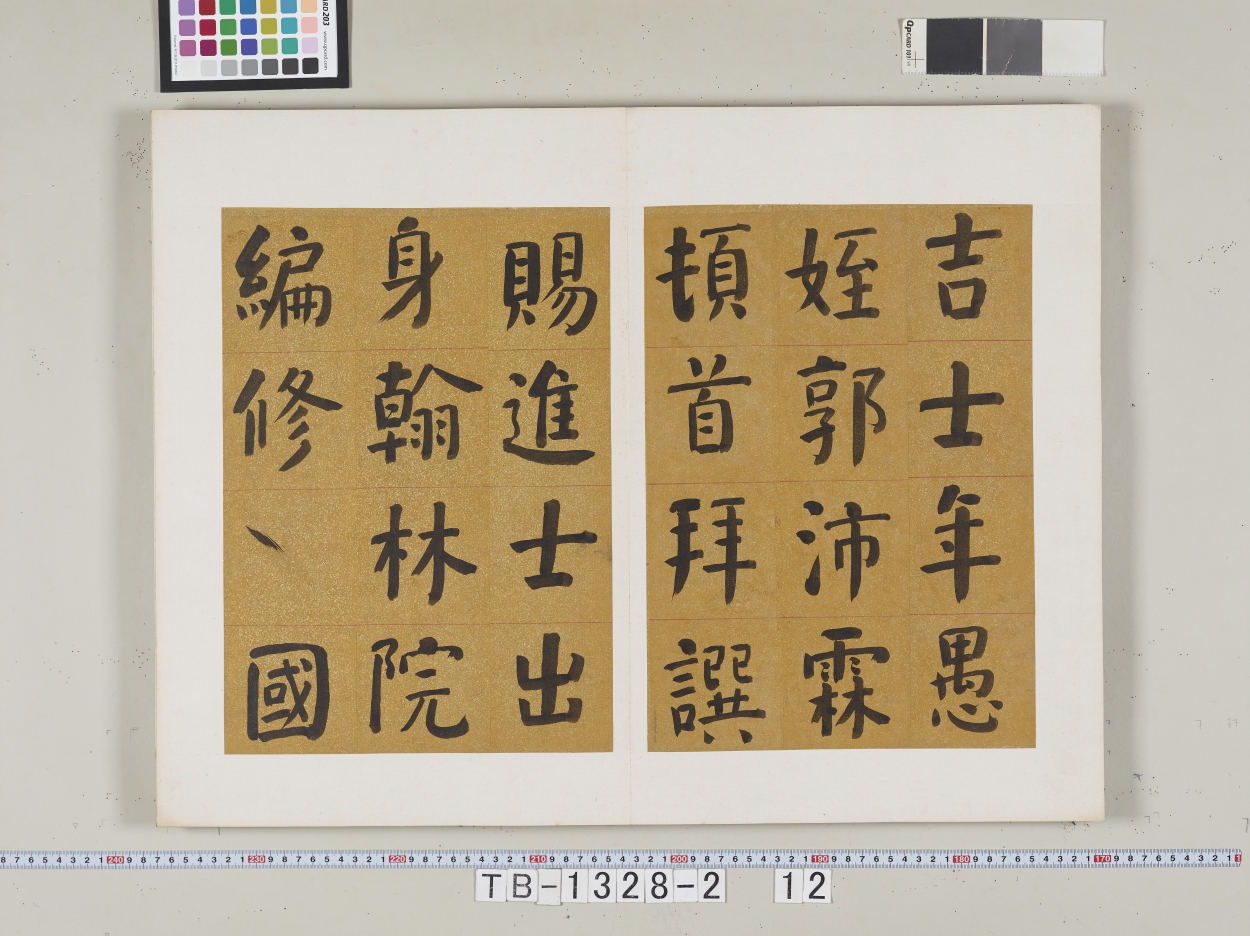 吉士年愚
姪郭沛霖
頓首拜譔
賜進士出
身翰林院
編修、國
TB-1328-2 12